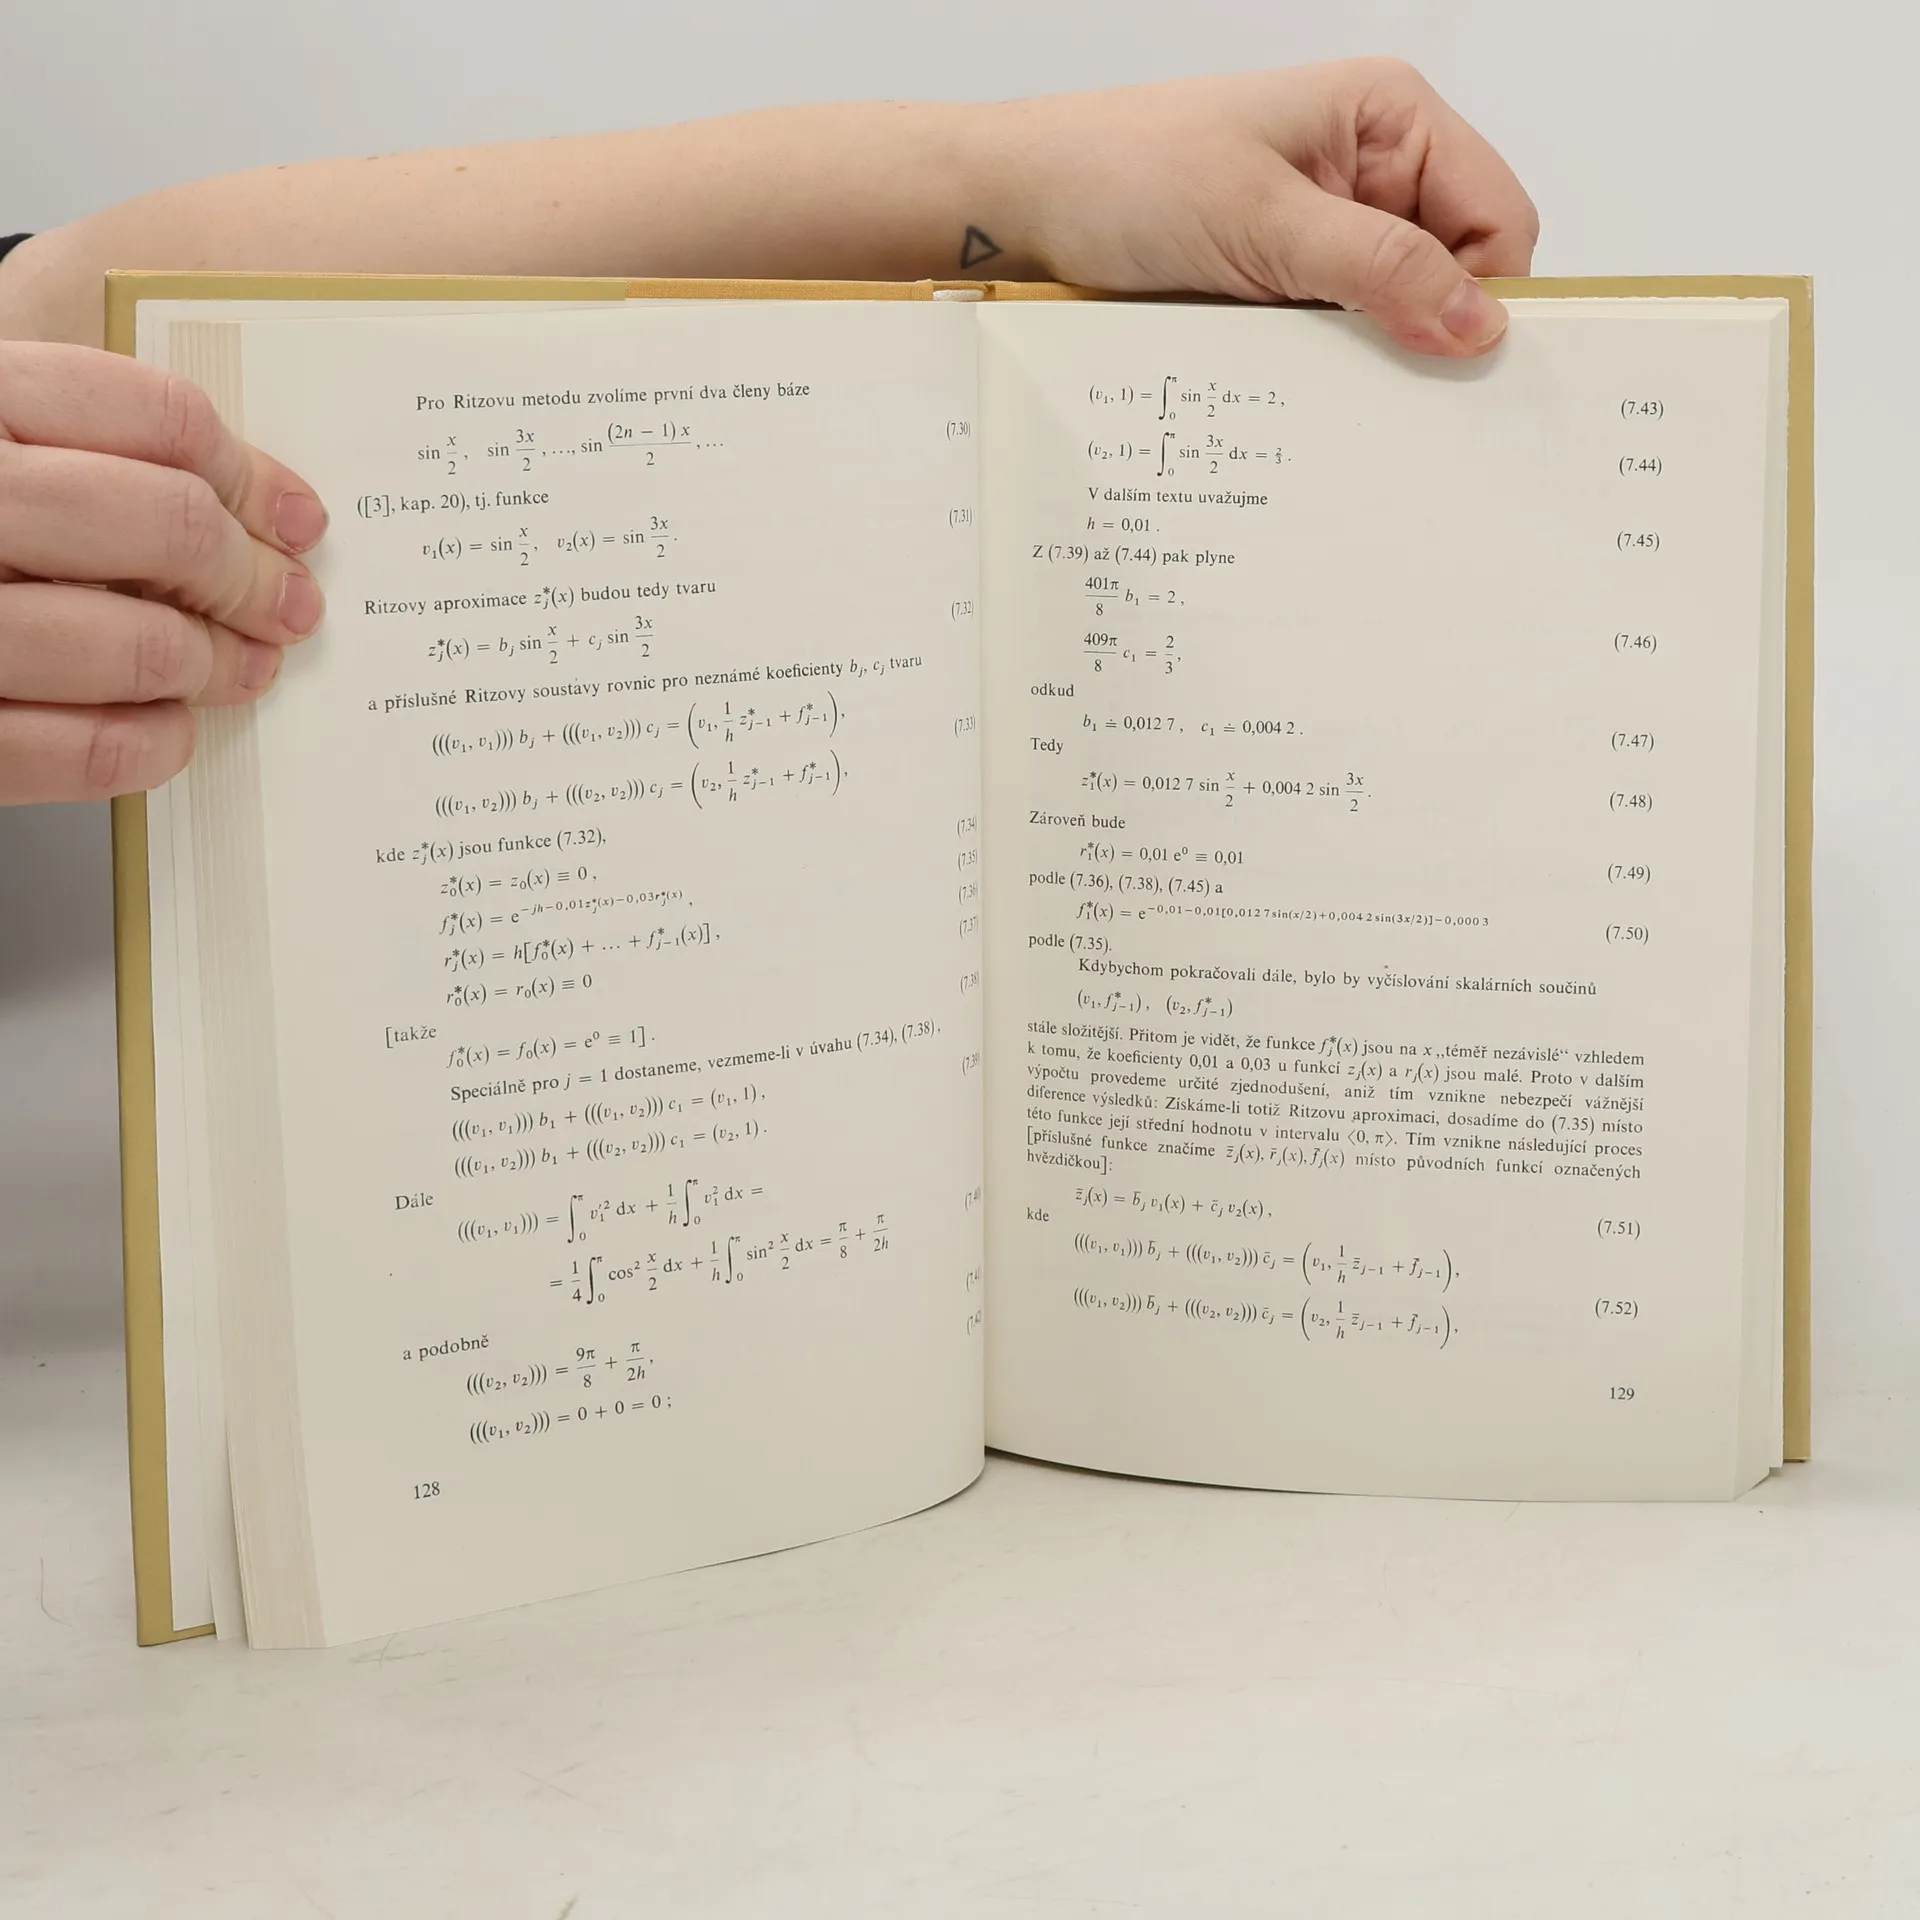 Pro Ritzovu metodu zvolíme první dva členy báze
sin x/2, sin 3x/2, ..., sin (2n − 1) x/2, ... (7.30)
([3], kap. 20), tj. funkce
v₁(x) = sin x/2, v₂(x) = sin 3x/2. (7.31)
Ritzovy aproximace zⱼ*(x) budou tedy tvaru
zⱼ*(x) = bⱼ sin x/2 + cⱼ sin 3x/2 (7.32)
a příslušné Ritzovy soustavy rovnic pro neznámé koeficienty bⱼ, cⱼ tvaru
(((v₁, v₁))) bⱼ + (((v₁, v₂))) cⱼ = (v₁, 1/h zⱼ₋₁* + fⱼ₋₁*), (7.33)
(((v₁, v₂))) bⱼ + (((v₂, v₂))) cⱼ = (v₂, 1/h zⱼ₋₁* + fⱼ₋₁*),
kde zⱼ*(x) jsou funkce (7.32),
z₀*(x) = z₀(x) ≡ 0, (7.34)
fⱼ*(x) = e^(−jh−0,01zⱼ*(x)−0,03rⱼ*(x)), (7.35)
rⱼ*(x) = h[f₀*(x) + ... + fⱼ₋₁*(x)], (7.36)
r₀*(x) = r₀(x) ≡ 0 (7.37)
[takže
f₀*(x) = f₀(x) = e⁰ ≡ 1]. (7.38)
Speciálně pro j = 1 dostaneme, vezmeme-li v úvahu (7.34), (7.38),
(((v₁, v₁))) b₁ + (((v₁, v₂))) c₁ = (v₁, 1), (7.39)
(((v₁, v₂))) b₁ + (((v₂, v₂))) c₁ = (v₂, 1).
Dále
(((v₁, v₁))) = ∫₀^π v₁′² dx + 1/h ∫₀^π v₁² dx =
= 1/4 ∫₀^π cos² x/2 dx + 1/h ∫₀^π sin² x/2 dx = π/8 + π/2h (7.40)
a podobně
(((v₂, v₂))) = 9π/8 + π/2h, (7.41)
(((v₁, v₂))) = 0 + 0 = 0; (7.42)
128
(v₁, 1) = ∫₀^π sin x/2 dx = 2, (7.43)
(v₂, 1) = ∫₀^π sin 3x/2 dx = 2/3. (7.44)
V dalším textu uvažujme
h = 0,01. (7.45)
Z (7.39) až (7.44) pak plyne
401π/8 b₁ = 2,
409π/8 c₁ = 2/3, (7.46)
odkud
b₁ ≐ 0,012 7, c₁ ≐ 0,004 2. (7.47)
Tedy
z₁*(x) = 0,012 7 sin x/2 + 0,004 2 sin 3x/2. (7.48)
Zároveň bude
r₁*(x) = 0,01 e⁰ ≡ 0,01 (7.49)
podle (7.36), (7.38), (7.45) a
f₁*(x) = e^(−0,01−0,01[0,012 7 sin(x/2)+0,004 2 sin(3x/2)]−0,000 3) (7.50)
podle (7.35).
Kdybychom pokračovali dále, bylo by vyčíslování skalárních součinů
(v₁, fⱼ₋₁*), (v₂, fⱼ₋₁*)
stále složitější. Přitom je vidět, že funkce fⱼ*(x) jsou na x „téměř nezávislé“ vzhledem
k tomu, že koeficienty 0,01 a 0,03 u funkcí zⱼ(x) a rⱼ(x) jsou malé. Proto v dalším
výpočtu provedeme určité zjednodušení, aniž tím vznikne nebezpečí vážnější
diference výsledků: Získáme-li totiž Ritzovu aproximaci, dosadíme do (7.35) místo
této funkce její střední hodnotu v intervalu ⟨0, π⟩. Tím vznikne následující proces
[příslušné funkce značíme z̄ⱼ(x), r̄ⱼ(x), f̄ⱼ(x) místo původních funkcí označených
hvězdičkou]:
z̄ⱼ(x) = b̄ⱼ v₁(x) + c̄ⱼ v₂(x), (7.51)
kde
(((v₁, v₁))) b̄ⱼ + (((v₁, v₂))) c̄ⱼ = (v₁, 1/h z̄ⱼ₋₁ + f̄ⱼ₋₁),
(((v₁, v₂))) b̄ⱼ + (((v₂, v₂))) c̄ⱼ = (v₂, 1/h z̄ⱼ₋₁ + f̄ⱼ₋₁), (7.52)
129